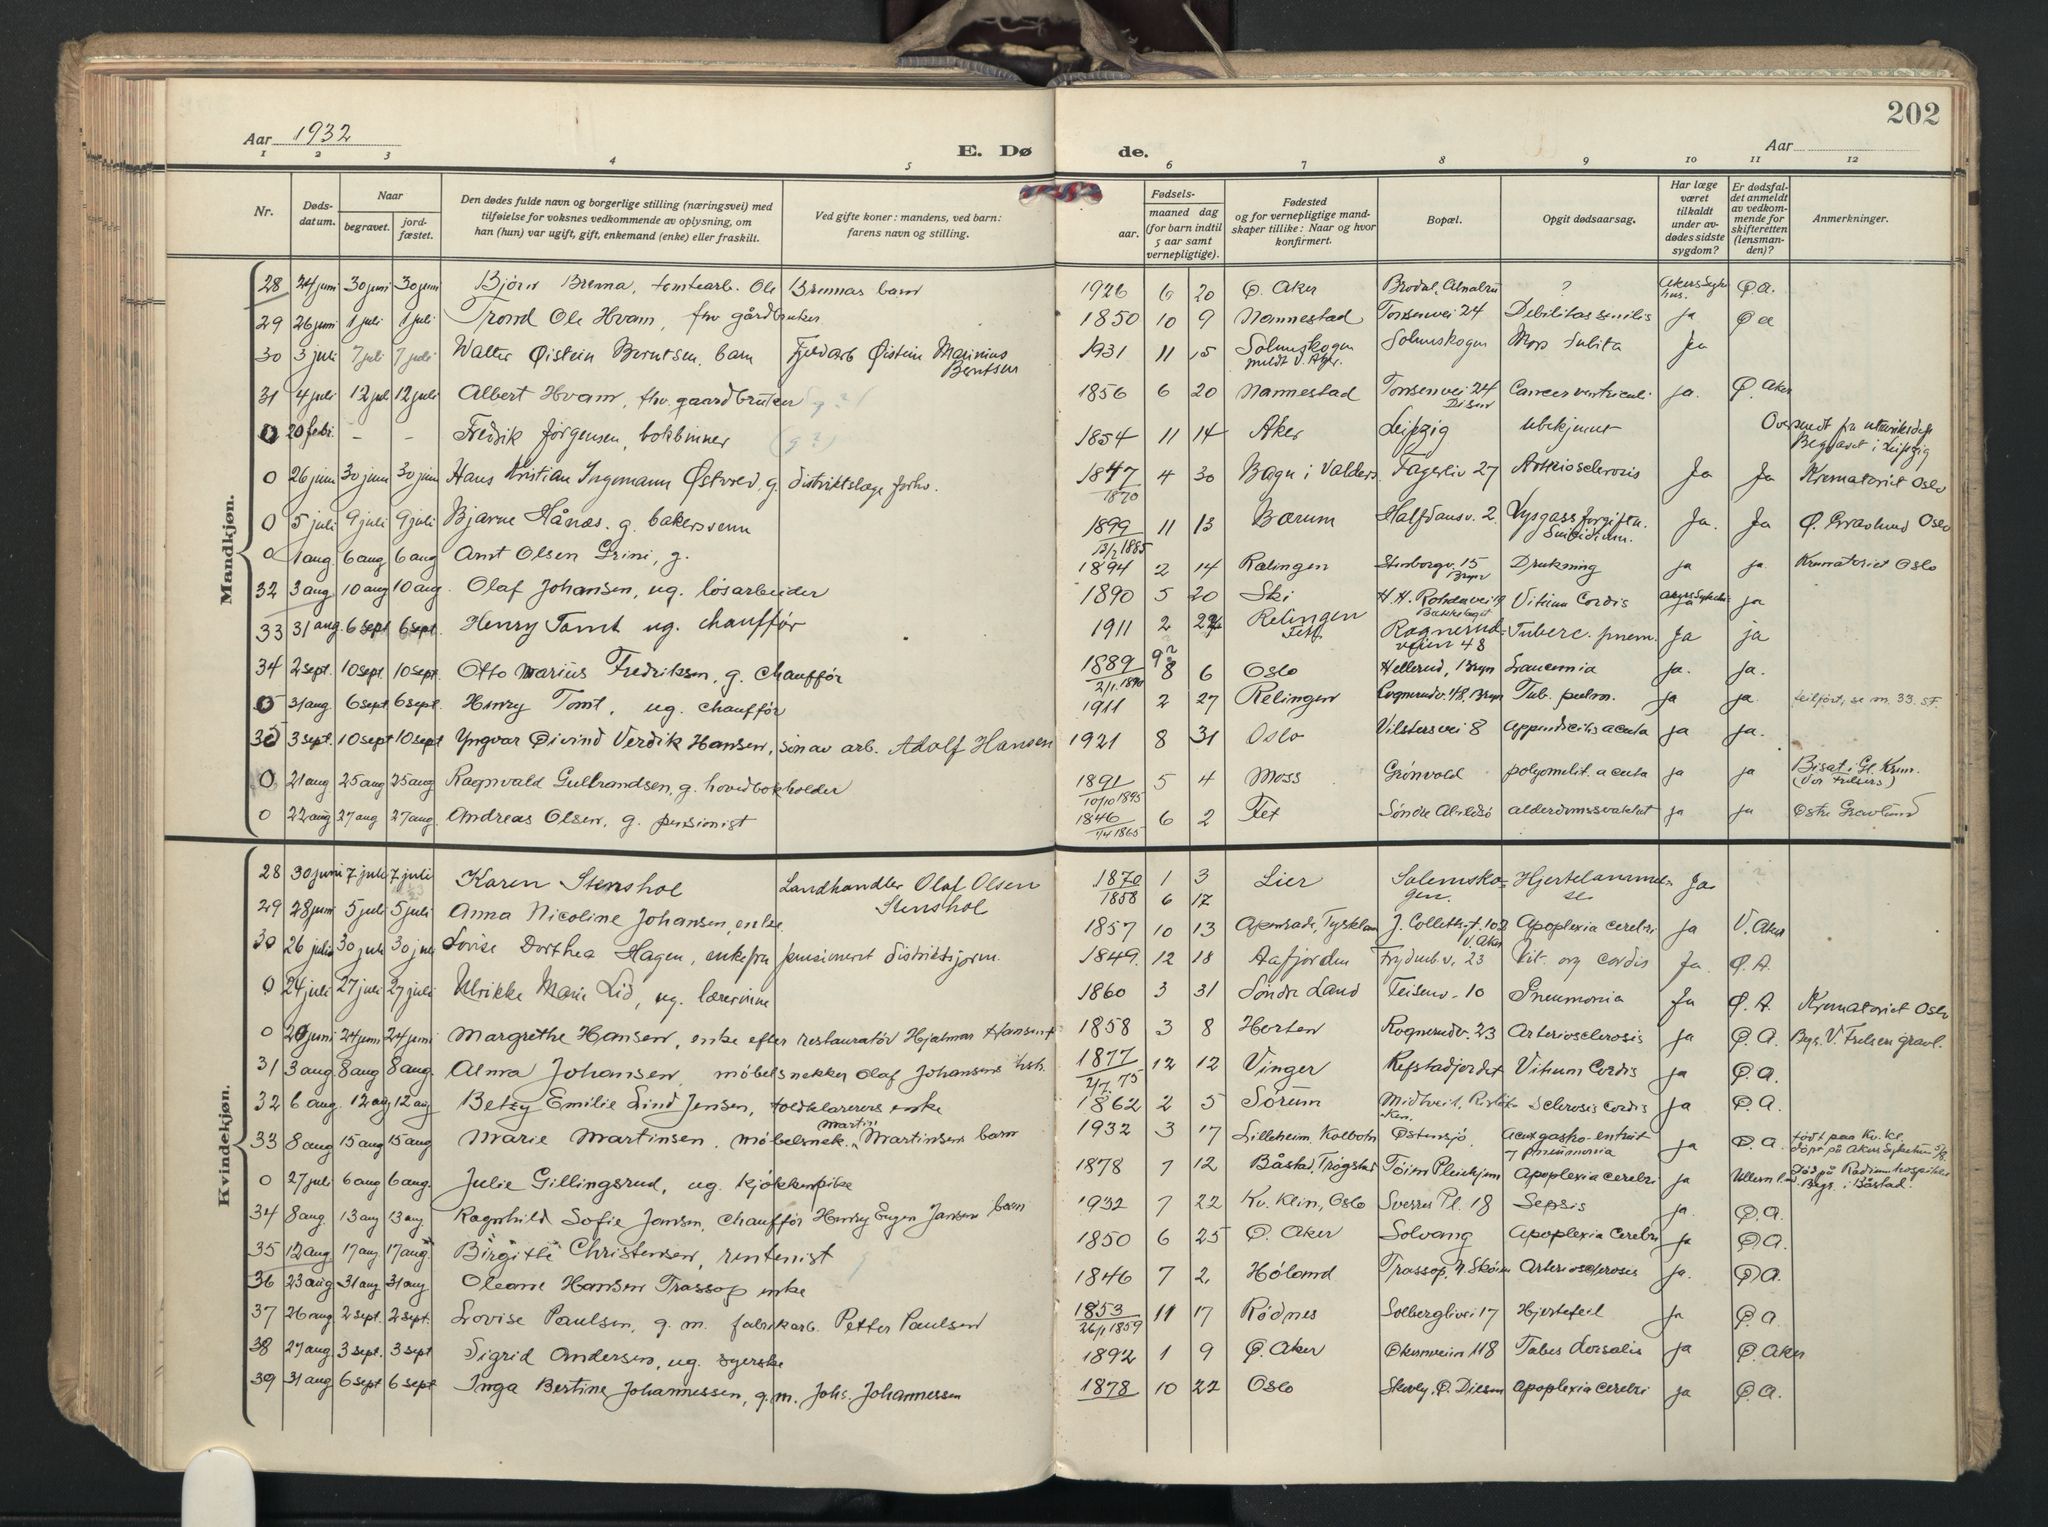 202
Aar 1932
E. Dø de.
Aar
1 2 3 4 5 6 7 8 9 10 11 12
Nr. | Døds-datum. | Naar begravet. | jord-fæstet. | Den dødes fulde navn og borgerlige stilling (næringsvei) med tilføielse for voksnes vedkommende av oplysning, om han (hun) var ugift, gift, enkemand (enke) eller fraskilt. | Ved gifte koner: mandens, ved barn: farens navn og stilling. | Fødsels- aar. | maaned dag (for barn indtil 5 aar samt vernepligtige). | Fødested og for vernepligtige mand-skaper tillike: Naar og hvor konfirmert. | Bopæl. | Opgit dødsaarsag. | Har læge været tilkaldt under av-dødes sidste sygdom? | Er dødsfal-det anmeldt av vedkom-mende for skifteretten (lensman-den)? | Anmerkninger.
Mandkjøn.
28 24 juni 30 juni 30 juni Bjørn Brenna, tomtearb. Ole Brennas barn 1926 6 20 Ø. Aker Brodal, Alnabru ? Akers Sykehus. Ø A.
29 26 juni 1 juli 1 juli Trond Ole Hvam, fhv gårdbruker 1850 10 9 Nannestad Tonsenvei 24 Debilitas senilis ja Ø A
30 3 juli 7 juli 7 juli Walter Øistein Berntsen, barn Fjeldarb Øistein Marinius Berntsen 1931 11 15 Solemskogen meldt V. Aker. Solemskogen Mors Subita Ja
31 4 juli 12 juli 12 juli Albert Hvam, fhv. gaardbruker (g?) 1856 6 20 Nannestad Tonsenvei 24 Disen Cancer ventriculi ja. Ø. Aker
0 20 febr. - - Fredrik Jørgensen, bokbinner (g?) 1854 11 14 Aker Leipzig Ubekjent Oversendt fra utenriksdept Begravet i Leipzig
0 26 juni 30 juni 30 juni Hans Kristian Ingemann Østved, g. distriktslæge forhv. 1847 1870 4 30 Bagn i Valders Fagerliv 27 Arteriosclerosis Ja Ja Krematoriet Oslo
0 5 juli 9 juli 9 juli Bjarne Hånæs. g. bakersvenn 1899 11 13 Bærum Halfdansv. 2. Lysgassforgiftn. Suicidium. Ja. Ja Ø. Gravlund Oslo
0 1 aug. 6 aug 6 aug Amt Olsen Grini, g. 13/2 1885 1894 2 14 Rælingen Stenborgv. 15 Bryn Drukning ja ja. Krematoriet Oslo
32 3 aug 10 aug 10 aug. Olaf Johansen, ug. løsarbeider 1890 5 20 Ski Bakkehaget Vitium Cordis ja ja
33 31 aug 6 sept 6 sept. Henry Tomt ug. chauffør 1911 2 27 Relingen Fet Rognerudveien 48 Tuberc. pnem. Ja ja
34 2 sept. 10 sept. 10 sept. Otto Marius Fredriksen, g. chauffør 1889 2/1 1890 9? 8 6 Oslo Hellerud, Bryn ja. ja.
0 31 aug 6 sept 6 sept. Henry Tomt, ug. chauffør 1911 2 27 Relingen Rognerudv. 48, Bryn Tub. pulm. ja ja. feilført, se nr. 33. SF.
35 3 sept. 10 sept 10 sept. Yngvar Øivind Verdik Hansen, søn av arb. Adolf Hansen 1921 8 31 Oslo Vilstersvei 8 Appendicitis acuta ja ja.
0 21 aug 25 aug 25 aug Ragnvald Gulbrandsen, g. hovedbokholder 1891 10/10 1895 5 4 Moss Grønvold polyomelit. acuta ja ja Bisat i Gl. Krem. (Vor Frelsers)
0 22 aug 27 aug 27 aug. Andreas Olsen, g. pensionist 1846 1/4 1865 6 2 Fet Søndre Abildsø alderdomssvakhet ja ja Østre Gravlund
Kvindekjøn.
28 30 juni 7 juli 7 juli Karen Stenshol Landhandler Olaf Olsen Stenshol 1870 1 3 Lier Solemskogen. Hjertelammelse Ja
29 28 juni 5 juli 5 juli Anna Nicoline Johansen, enke. 1858 6 17 1857 10 13 Apenrade, Tyskland J. Collettsgt. 102 V. Aker Apoplexia cerebri ja V. Aker
30 26 juli 30 juli 30 juli Lovise Dorthea Hagen, enke fra pensioneret distriktsjorm. 1849. 12 18 Aafjorden Frydenb v. 23 Vit. org cordis Ja. Ø. A.
0 24 juli 27 juli 27 juli Ulrikke Marie Lid, ug. lærerinne 1860 3 31 Søndre Land Teisenv. 10 Pneumonia Ja Ø. A Krematoriet Oslo
0 20 juni 24 juni 24 juni Margrethe Hansen, enke efter restauratør Hjalmar Hansen 1858 3 8 Horten Rognerudv. 23 Arteriosclerosis ja Ø. A. Begr. V. Frelsers gravl.
31 3 aug. 8 aug 8 aug. Alma Johansen, møbelsnekker Olaf Johansens hstr. 1877 2/7. 75 12 12 Vinger Refstadjordet Vitium Cordis ja Ø. A.
32 6 aug. 12 aug 12 aug Betzy Emilie Lind Jensen, toldklarerers enke 1862 2 5 Sørum Sclerosis cordis ja Ø. A.
33 8 aug 15 aug 15 aug Marie Martinsen, møbelsnek. Martin Martinsens barn 1932 3 17 Lilleheim, Kolbotn Østensjø. Acut gastro-enterit + pneumonia ja Ø. A. født paa Kv. Kl. Døpt på Akers Sykehus 5/8.
0 27 juli 6 aug 6 aug. Julie Gillingsrud, ug. kjøkkenpike 1878 7 12 Båstad, Trøgstad Tøien Pleiehjem Apoplexia cerebri ja Ullern l. Død på Radiumhospitalet Begr. i Båstad.
34 8 aug. 13 aug 13 aug Ragnhild Sofie Jansen, chauffør Henry Eugen Jansens barn 1932 7 22 Kv. Klin, Oslo Sverres Pl. 18 Sepsis ja. Ø. A.
35 12 aug 17 aug. 17 aug Birgitte Christensen, rentenist 1850 6 25 Ø. Aker Solvang Apoplexia Cerebri ja Ø A.
36 23 aug 31 aug 31 aug Oleane Hansen Trassop enke 1846 7 2. Høland Trassop, N. Skøien Arteriosclerosis ja. Ø A.
37 26 aug 2 sept. 2 sept. Lovise Paulsen, g. m. fabrikarb. Petter Paulsen 1853 26/1 1859 11 17 Rødnes Solberglivei 17 Hjertefeil ja Ø. A.
38 27 aug. 3 sept. 3 sept Sigrid Andersen, ug. syerske 1892 1 9 Ø. Aker Økernveien 118 Tabes dorsalis ja Ø. Aker
39 31 aug 6 sept 6 sept. Inga Bertine Johannessen, g. m. Johs. Johannessen 1878 10 22 Oslo Skovly, Ø. Disen Apoplexia cerebri ja Ø A.